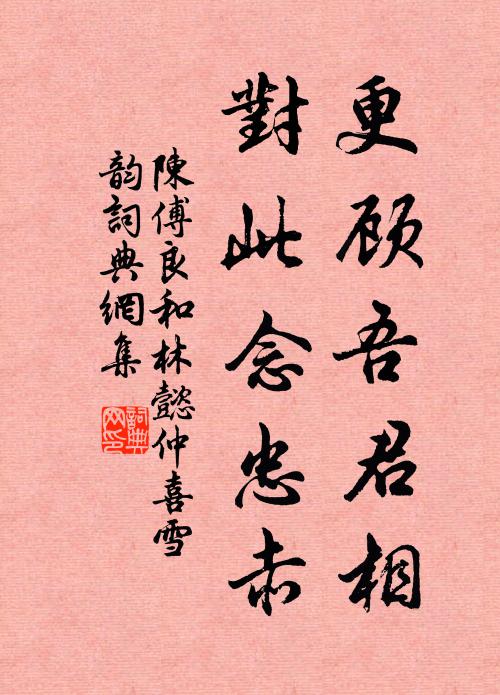 更顾吾君相
對此念忠赤
陳傅良和林懿仲喜雪
韵詞典網集
詞典
网印